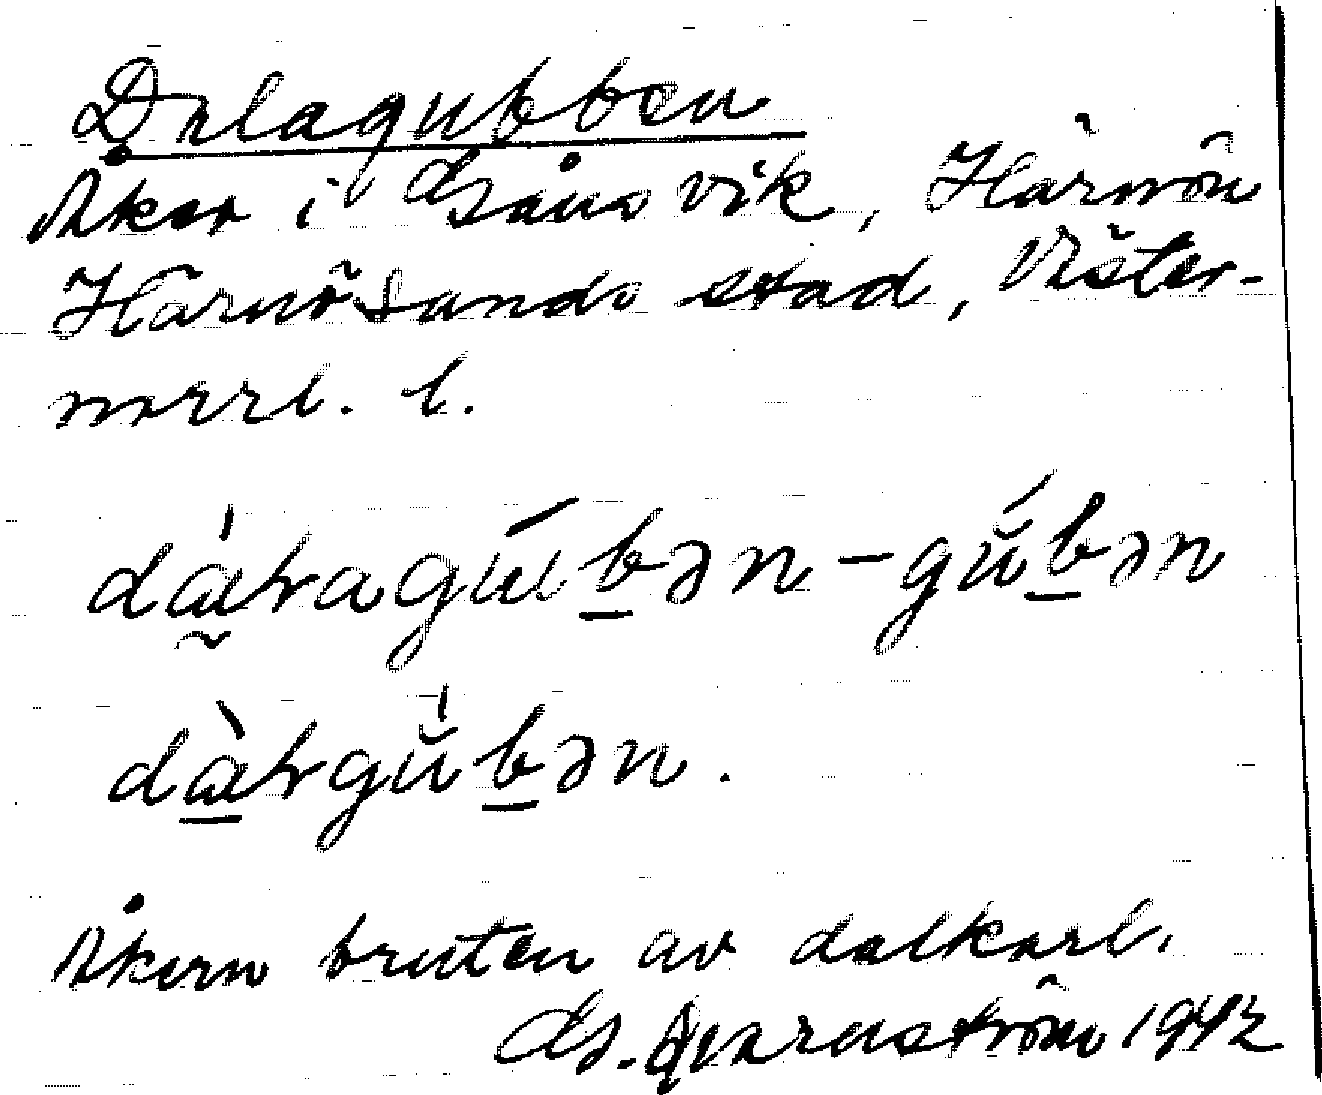 Dalagubben
Åker i Gånsvik, Härnön
Härnösands stad, Väster-
norrl. l.
dàɽagúbən – gŭ́bən
dàɽgŭbən.
Åkern bruten av dalkarl.
G. Qvarnström 1942